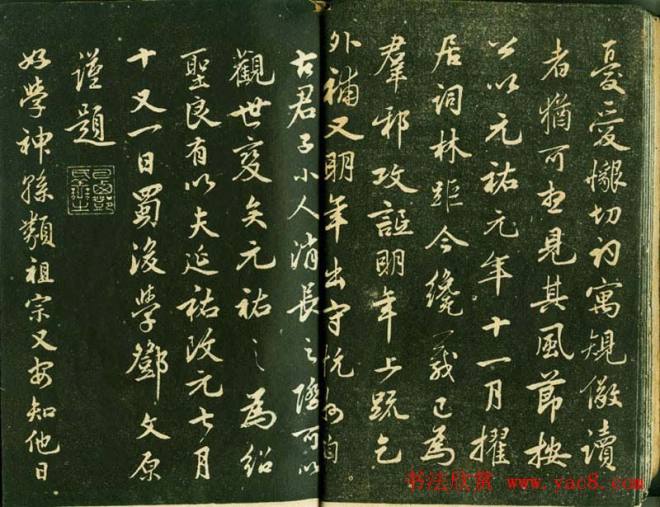 憂愛懇切詞寓規儆讀
者猶可想見其風節按
公以元祐元年十一月擢
居詞林距今纔一歲已為
羣邪攻詆明年上疏乞
外補又明年出守
古君子小人消長之際可以
觀世變矣元祐之為紹
聖良有以夫延祐改元七月
十又一日蜀後學鄧文原
謹題
好學神孫類祖宗又安知他日
书法欣赏 www.yac8.com